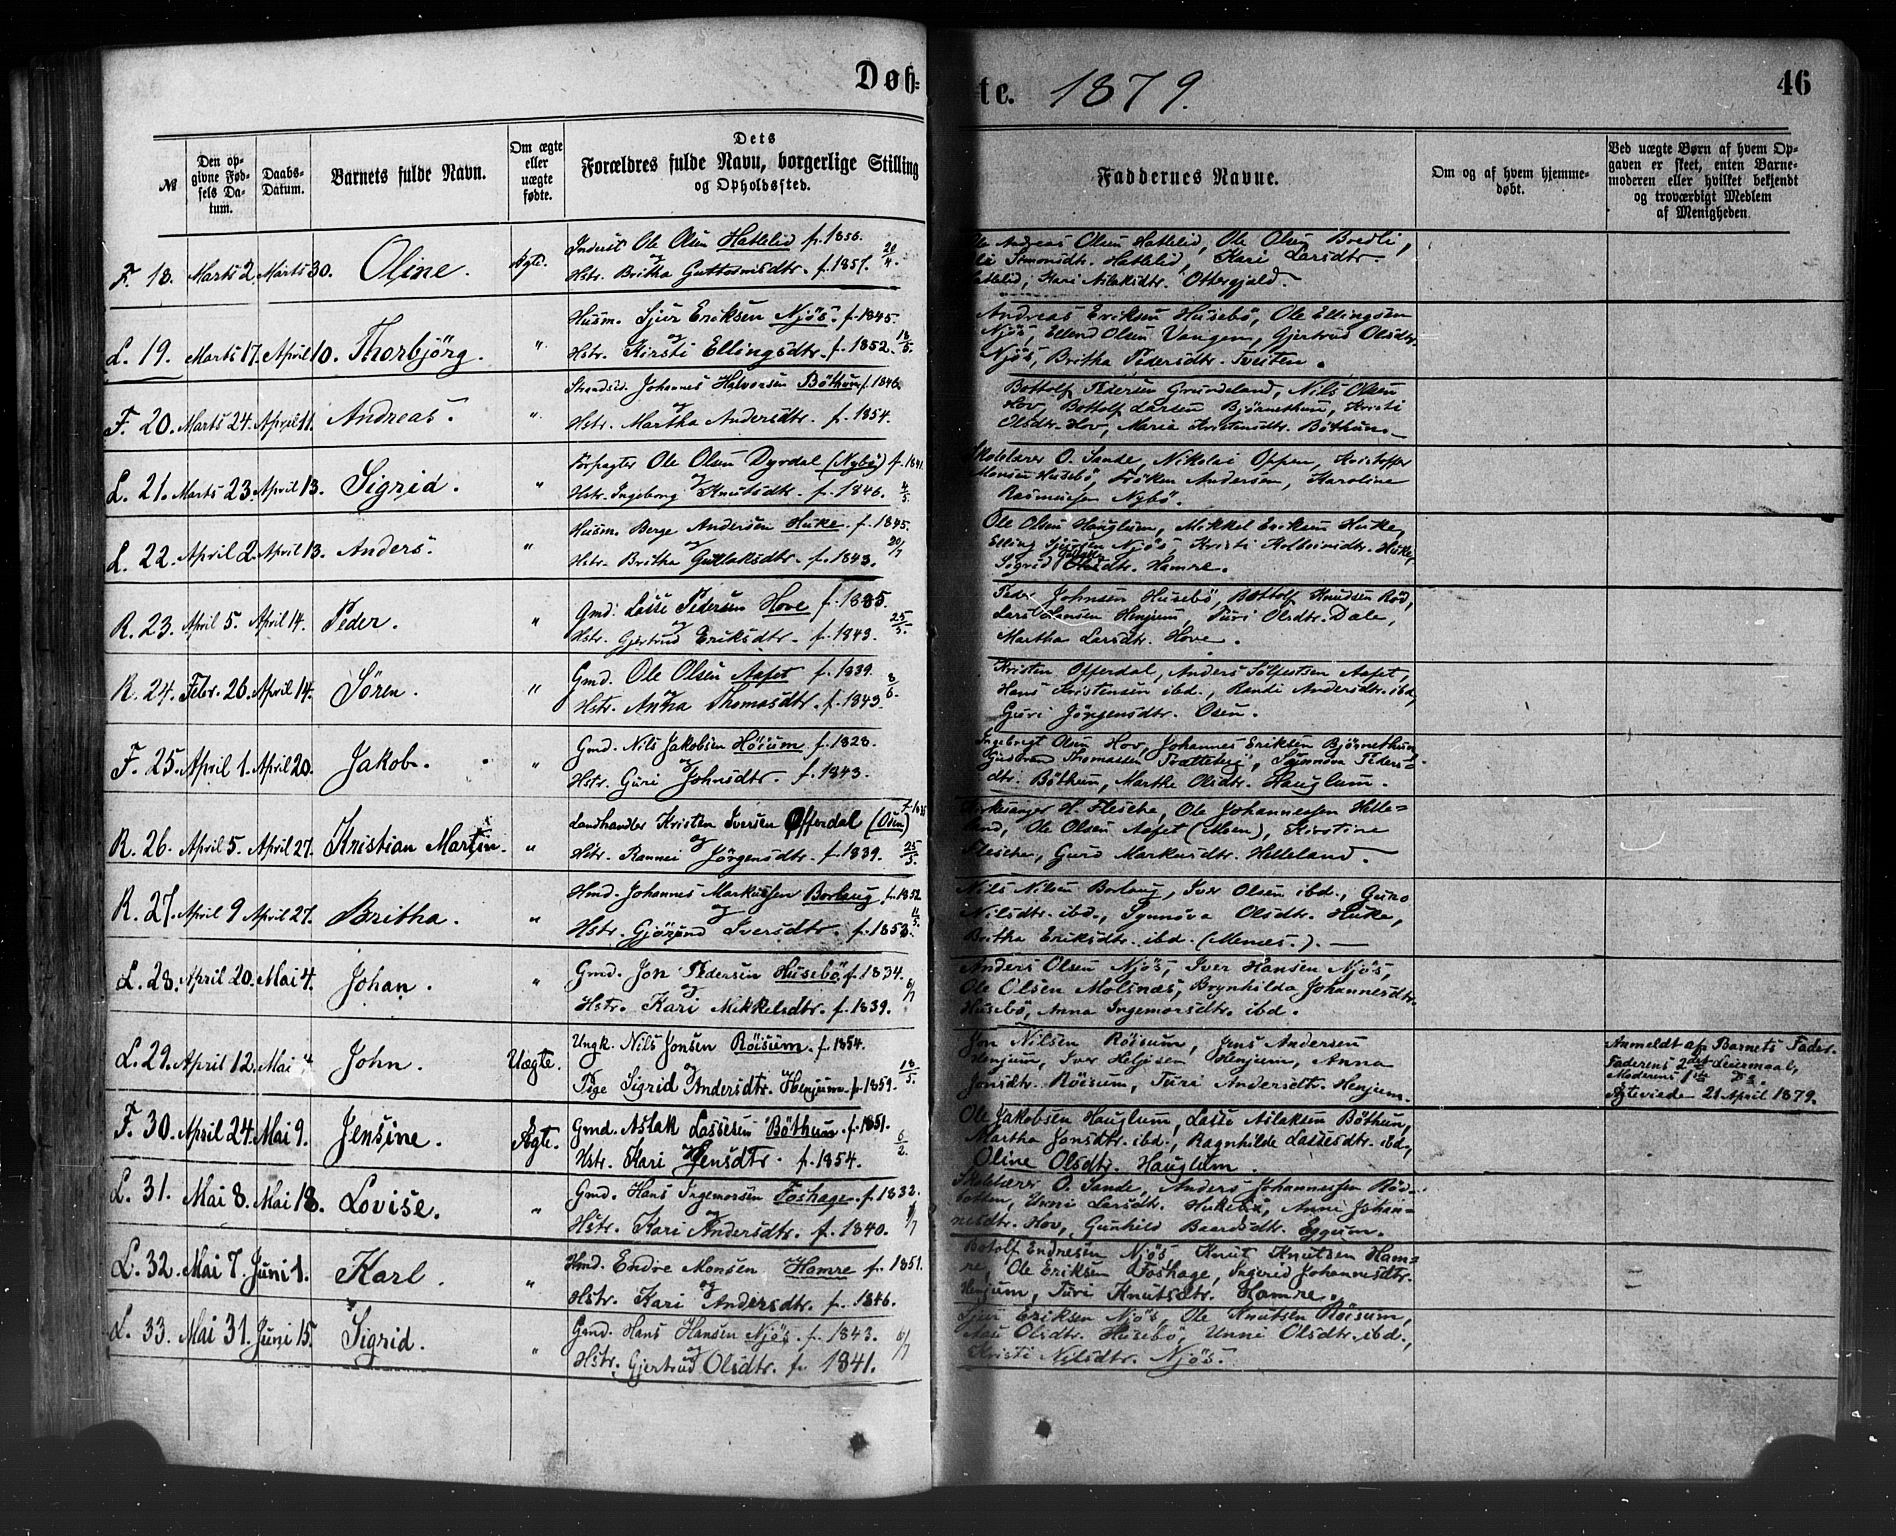 Døb=
te. 1879.
46
№
Den op-
givne Fød-
sels Da-
tum.
Daabs-
Datum.
Barnets fulde Navn.
Om ægte
eller
uægte
fødte.
Dets
Forældres fulde Navn, borgerlige Stilling
og Opholdssted.
Faddernes Navne.
Om og af hvem hjemme-
døbt.
Ved uægte Børn af hvem Op-
gaven er skeet, enten Barne-
moderen eller hvilket bekjendt
og troværdigt Medlem
af Menigheden.
F. 18. Marts 2. Marts 30. Oline. Ægte.
Inderst Ole Olsen Hattelid f. 1856.
og
Hstr. Britha Guttormsdtr. f. 1857. 20/4.
Andreas Olsen Hattelid, Ole Olsen Bredli,
Simonsdtr. Hattelid, Kari Larsdtr.
Hattelid, Kari Nilsdtr. Ottergjæld.
L. 19. Marts 17. April 10. Thorbjörg. "
Husm. Sjur Eriksen Njøs. f. 1845.
og
Hstr. Kirsti Ellingsdtr. f. 1852. 18/5
Andreas Eriksen Husebö, Ole Ellingsen
Njøs, Ellend Olsen Vangen, Gjertrud Olsdtr.
Njøs, Britha Pedersdtr. Tveiten.
F. 20. Marts 24. April 11. Andreas. "
Strands. Johannes Halvorsen Böthun f. 1846.
og
Hstr. Martha Andersdtr. f. 1854.
Bottolf Pedersen Grindeland, Nils Olsen
Hov, Bottolf Larsen Björnethun, Kristi
Olsdtr. Hov, Maria Kristensdtr. Böthun.
L. 21. Marts 23. April 13. Sigrid. "
Forpagter Ole Olsen Dyrdal (Nybö) f. 1841.
og
Hstr. Ingeborg Knutsdtr. f. 1846. 4/5.
Skolelærer O. Sande, Nikolai Oppen, Kristoffer
Monsen Husebö, Fröken Andersen, Karoline
Rasmussen Nybö.
L. 22. April 2. April 13. Anders. "
Husm. Berge Andersen Huke. f. 1845.
og
Hstr. Britha Gullaksdtr. f. 1843. 20/7
Ole Olsen Hauglum, Mikkel Eriksen Huke,
Elling Sjursen Njøs, Kristi Kolbeinsdtr. Huke,
Sigrid Olsdtr. Hamre.
R. 23. April 5. April 14. Peder. "
Gmd. Lasse Pedersen Hove f. 1835.
og
Hstr. Gjertrud Eriksdtr. f. 1843. 25/5.
Peder Johnsen Husebö, Bottolf Knudsen Röd,
Lars Hansen Henjum, Turi Olsdtr. Dale,
Martha Larsdtr. Hove.
R. 24. Febr. 26. April 14. Sören. "
Gmd. Ole Olsen Aafet f. 1839.
og
Hstr. Anna Thomasdtr. f. 1843. 3/6.
Kristen Offerdal, Anders Sölfestsen Aafet,
Hans Kristensen ibd., Randi Andersdtr. ibd,
Guri Jörgensdtr. Osen.
F. 25. April 1. April 20. Jakob. "
Gmd. Nils Jakobsen Höium f. 1828.
og
Hstr. Guri Johnsdtr. f. 1843.
Ingebrigt Olsen Hov, Johannes Eriksen Björnethun
Thomassen Tvætteberg, Synnöva Peders-
dtr. Böthun, Marthe Olsdtr. Hauglum.
R. 26. April 5. April 27. Kristian Martin. "
Landhandler Kristen Iversen Offerdal (Osen)
og
Hstr. Rannei Jörgensdtr. f. 1839. 25/5.
Kirkesanger H. Flesche, Ole Johannessen Helle=
land, Ole Olsen Aafet (Moen), Kirstine
Flesche, Guro Markusdtr. Helleland.
R. 27. April 9 April 27. Britha. "
Hmd. Johannes Markussen Borlaug f. 1852.
og
Hstr. Gjörond Iversdtr. f. 1853. 11/5.
Nils Nilsen Borlaug, Iver Olsen ibd., Guro
Nilsdtr. ibd., Synnöva Olsdtr. Huke,
Britha Eriksdtr. ibd. (Menes.).
L. 28. April 20. Mai 4. Johan. "
Gmd. Jon Pedersen Husebö f. 1834.
og
Hstr. Kari Mikkelsdtr. f. 1839. 6/7
Anders Olsen Njøs, Iver Hansen Njøs,
Ole Olsen Molsnæs, Brynhilda Johannesdtr.
Husebö, Anna Ingemorsdtr. ibd.
L. 29. April 12. Mai 4 John. Uægte.
Ungk. Nils Jonsen Röisum. f. 1854.
og
Pige Sigrid Andersdtr. Henjum f. 1859. 18/5.
Jon Nilsen Röisum, Jens Andersen
Henjum, Iver Heljesen Henjum, Anna
Jonsdtr. Röisum, Turi Andersdtr. Henjum.
Anmeldt af Barnets Fader.
Faderens 2det Leiermaal,
Moderens 1ste Do.
Ægteviede 21 April 1879.
F. 30. April 24. Mai 9. Jensine. Ægte.
Gmd. Aslak Lassesen Böthun. f. 1851.
Hstr. Kari Jensdtr. f. 1854. 6/2.
Ole Jakobsen Hauglum, Lasse Aslaksen Böthun,
Martha Jonsdtr. ibd., Ragnhilde Lassesdtr. ibd,
Oline Olsdtr. Hauglum.
L. 31. Mai 8. Mai 18. Lovise. "
Gmd. Hans Ingemorsen Foshage. f. 1832.
og
Hstr. Kari Andersdtr. f. 1840.
Skolelærer O. Sande, Anders Johannessen Röd-
botten, Unni Larsdtr. Husebö, Anne Johan=
nesdtr. Hov, Gunhild Baardsdtr. Eggum.
L. 32. Mai 7. Juni 1. Karl. "
Hmd. Endre Monsen Hamre f. 1851.
og
Hstr. Kari Andersdtr. f. 1846.
Botolf Endresen Njøs, Knut Knutsen Ham-
re, Ole Eriksen Foshage, Ingerid Johannesdtr.
Henjum, Turi Knutsdtr. Hamre.
L. 33. Mai 31. Juni 15. Sigrid. "
Gmd. Hans Hansen Njøs. f. 1843. 6/7
og
Hstr. Gjertrud Olsdtr. f. 1841.
Sjur Eriksen Njøs, Ole Knutsen Röisum,
Olsdtr. Husebö, Unni Olsdtr. ibd.,
Kristi Nilsdtr. Njøs.